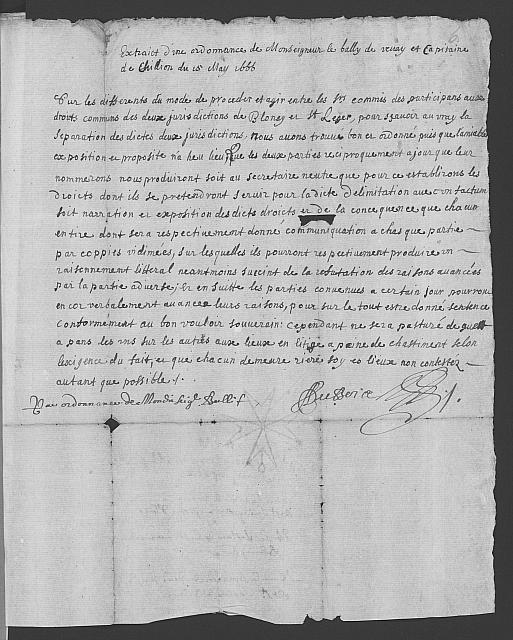 Extraict d'vne ordonnance de Monseigneur le bally de vevay et Capitaine
de Chillion du 15 May 1666
Sur les differents du mode de proceder et agir entre les Srs commis des participans aux
droits communs des deux jurisdictions de Blonay et St Leger, pour scavoir au vray la
Separation des dictes deux jurisdictions, Nous avons trouve bon et ordonné puis que l'amiable
exposition et proposite n'a heu lieu que les deux parties reciproquement a jour que leur
nommerons nous produiront soit au secretaire neutre que pour ce establirons les
droicts dont ils se pretendront servir pour la dicte delimitation avec vn factum
soit narration et exposition des dicts droicts et de la consequence que chacun
en tire dont sera respectivement donné communiquation a chasque partie
par coppies vidimées, sur lesquelles ils pourront respectivement produire vn
raisonnement litteral neantmoins succint de la refutation des raisons avancées
par la partie adverse; Et en suitte les parties convenues a certain jour pourront
encor verbalement avancer leurs raisons, pour sur le tout estre donné sentence
Conformément au bon vouloir souverain: Cependant ne sera pasturé de
a pans les vns sur les autres aux lieux en litige a peine de chastiment selon
l'exigence du fait, et que chacun demeure riere soy es lieux non contestez
autant que possible
Par ordonnance de Mondit Seigr Ballif